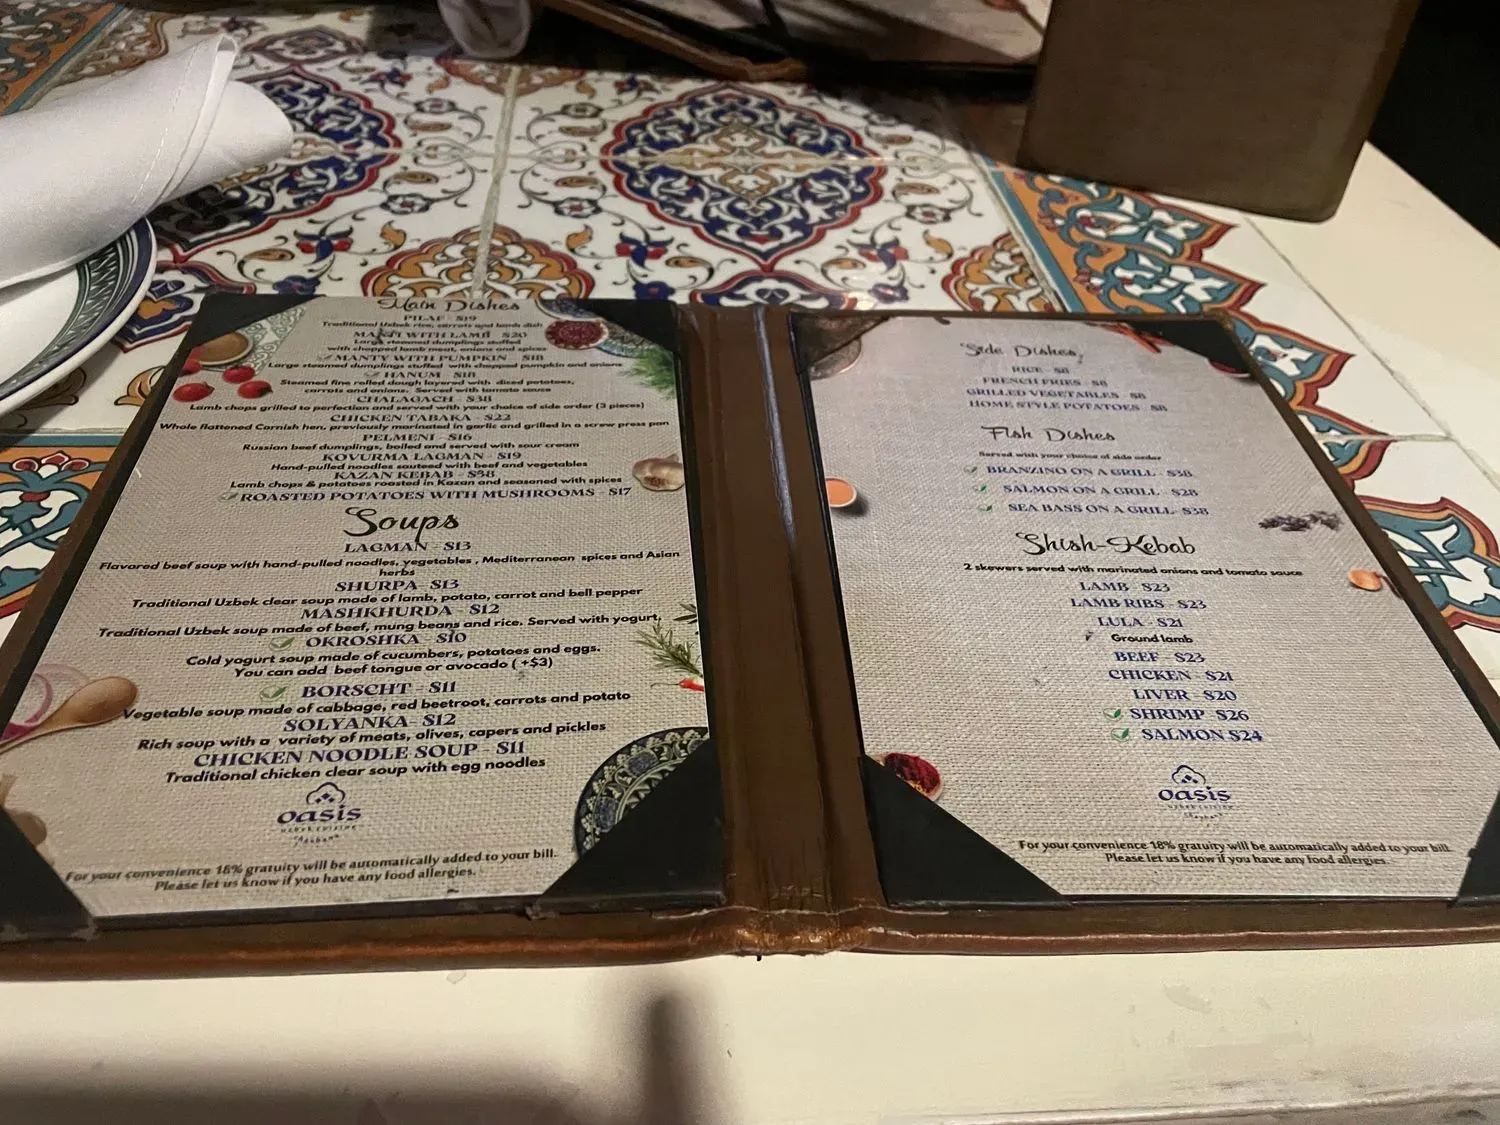 Main Dishes
PILAF - $19
Traditional Uzbek rice, carrots and lamb dish
MANTY WITH LAMB - $20
Large steamed dumplings stuffed
with chopped lamb meat, onions and spices
MANTY WITH PUMPKIN - $18
Large steamed dumplings stuffed with chopped pumpkin and onions
HANUM - $18
Steamed fine rolled dough layered with diced potatoes,
carrots and onions. Served with tomato sauce
CHALAGACH - $38
Lamb chops grilled to perfection and served with your choice of side order (3 pieces)
CHICKEN TABAKA - $22
Whole flattened Cornish hen, previously marinated in garlic and grilled in a screw press pan
PELMENI - $16
Russian beef dumplings, boiled and served with sour cream
KOVURMA LAGMAN - $19
Hand-pulled noodles sauteed with beef and vegetables
KAZAN KEBAB - $38
Lamb chops & potatoes roasted in Kazan and seasoned with spices
ROASTED POTATOES WITH MUSHROOMS - $17
Soups
LAGMAN - $13
Flavored beef soup with hand-pulled noodles, vegetables, Mediterranean spices and Asian
herbs
SHURPA - $13
Traditional Uzbek clear soup made of lamb, potato, carrot and bell pepper
MASHKHURDA - $12
Traditional Uzbek soup made of beef, mung beans and rice. Served with yogurt.
OKROSHKA - $10
Cold yogurt soup made of cucumbers, potatoes and eggs.
You can add beef tongue or avocado ( +$3)
BORSCHT - $11
Vegetable soup made of cabbage, red beetroot, carrots and potato
SOLYANKA- $12
Rich soup with a variety of meats, olives, capers and pickles
CHICKEN NOODLE SOUP - $11
Traditional chicken clear soup with egg noodles
oasis
uzbek cuisine
For your convenience 18% gratuity will be automatically added to your bill.
Please let us know if you have any food allergies.
Side Dishes
RICE - $8
FRENCH FRIES - $8
GRILLED VEGETABLES - $8
HOME STYLE POTATOES - $8
Fish Dishes
Served with your choice of side order
BRANZINO ON A GRILL - $38
SALMON ON A GRILL - $28
SEA BASS ON A GRILL- $38
Shish-Kebab
2 skewers served with marinated onions and tomato sauce
LAMB - $23
LAMB RIBS - $23
LULA - $21
Ground lamb
BEEF - $23
CHICKEN - $21
LIVER - $20
SHRIMP - $26
SALMON $24
oasis
uzbek cuisine
For your convenience 18% gratuity will be automatically added to your bill.
Please let us know if you have any food allergies.